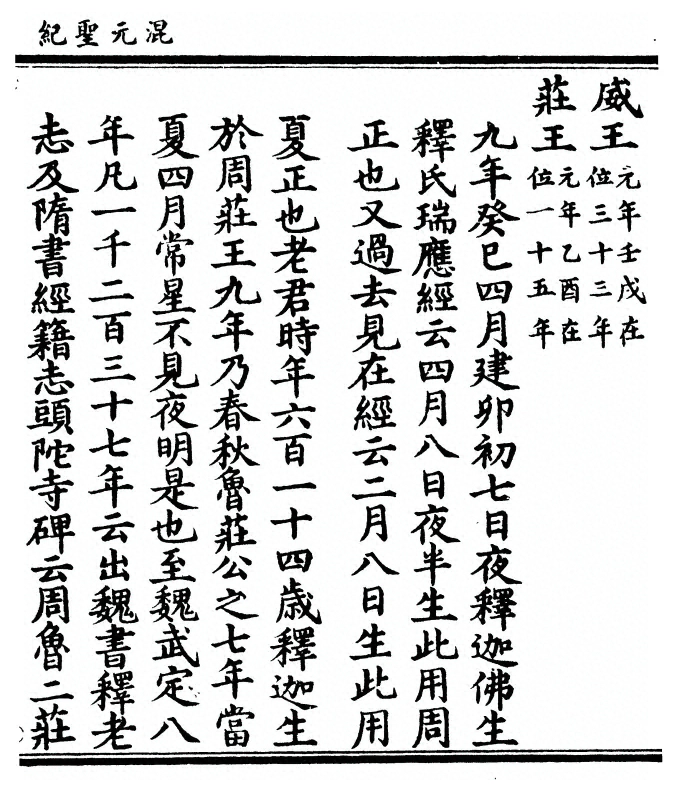 混元聖紀
威王元年壬戌在位三十三年
莊王元年乙酉在位一十五年
九年癸巳四月建卯初七日夜釋迦佛生
釋氏瑞應經云四月八日夜半生此用周
正也又過去見在經云二月八日生此用
夏正也老君時年六百一十四歲釋迦生
於周莊王九年乃春秋魯莊公之七年當
夏四月常星不見夜明是也至魏武定八
年凡一千二百三十七年云出魏書釋老
志及隋書經籍志頭陀寺碑云周魯二莊